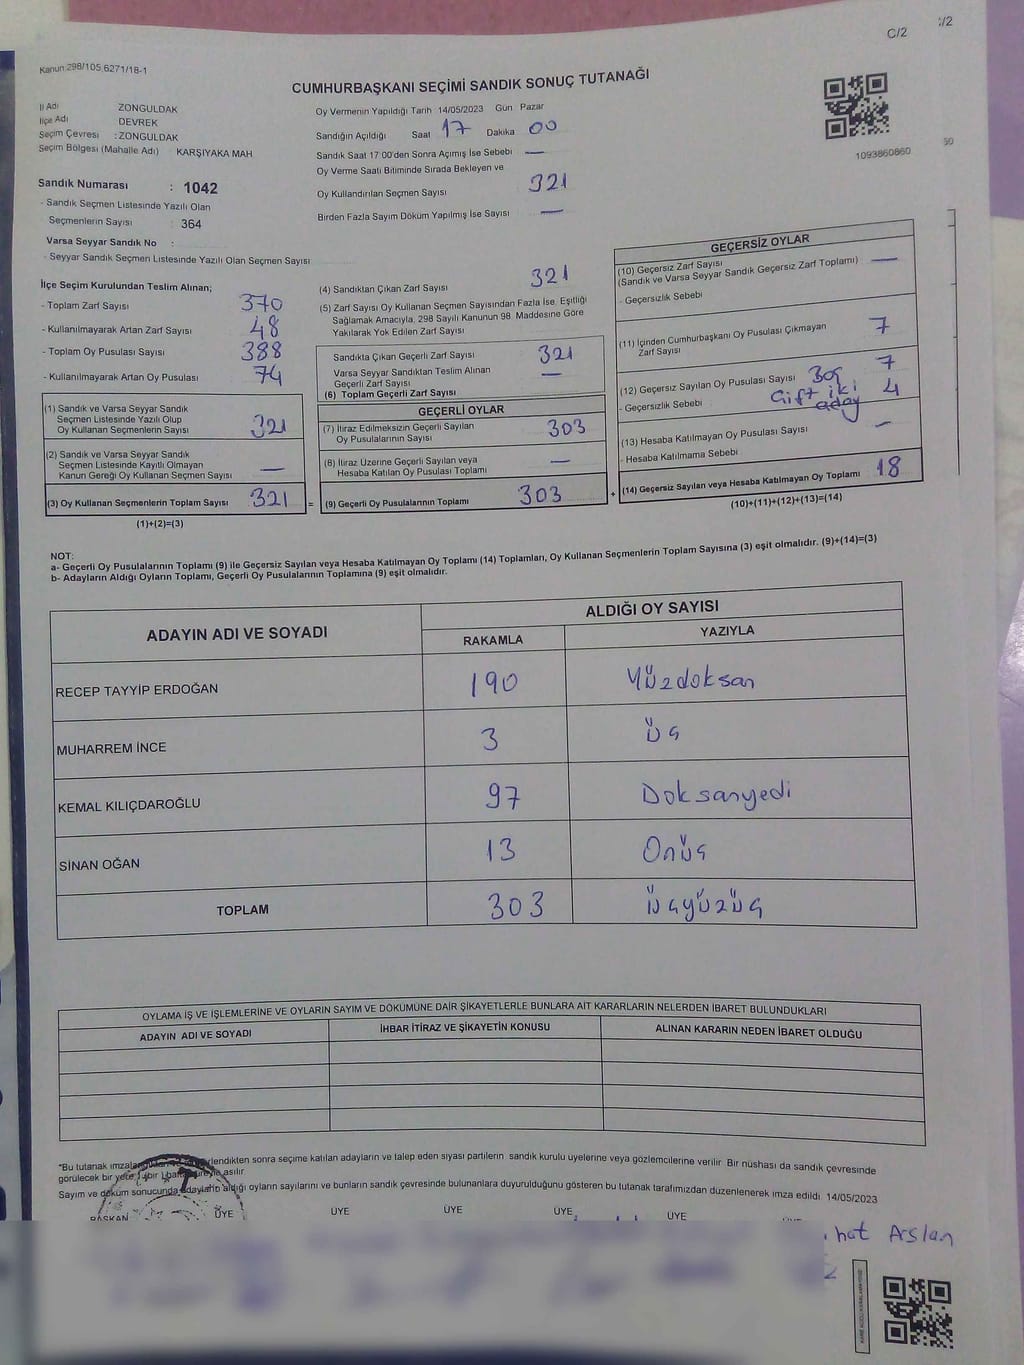 C/2
:/2
Kanun 298/105 6271/18-1
CUMHURBAŞKANI SEÇİMİ SANDIK SONUÇ TUTANAĞI
İl Adı ZONGULDAK
İlçe Adı DEVREK
Seçim Çevresi : ZONGULDAK
Seçim Bölgesi (Mahalle Adı) KARŞIYAKA MAH
Sandık Numarası : 1042
- Sandık Seçmen Listesinde Yazılı Olan
Seçmenlerin Sayısı : 364
Varsa Seyyar Sandık No :
- Seyyar Sandık Seçmen Listesinde Yazılı Olan Seçmen Sayısı
Oy Vermenin Yapıldığı Tarih 14/05/2023 Gün Pazar
Sandığın Açıldığı Saat 17 Dakika 00
Sandık Saat 17 00'den Sonra Açımış İse Sebebi —
Oy Verme Saati Bitiminde Sırada Bekleyen ve
Oy Kullandırılan Seçmen Sayısı 321
Birden Fazla Sayım Döküm Yapılmış İse Sayısı —
1093860860
İlçe Seçim Kurulundan Teslim Alınan;
- Toplam Zarf Sayısı 370
- Kullanılmayarak Artan Zarf Sayısı 48
- Toplam Oy Pusulası Sayısı 388
- Kullanılmayarak Artan Oy Pusulası 74
(1) Sandık ve Varsa Seyyar Sandık
Seçmen Listesinde Yazılı Olup
Oy Kullanan Seçmenlerin Sayısı 321
(2) Sandık ve Varsa Seyyar Sandık
Seçmen Listesinde Kayıtlı Olmayan
Kanun Gereği Oy Kullanan Seçmen Sayısı —
(3) Oy Kullanan Seçmenlerin Toplam Sayısı 321 =
(1)+(2)=(3)
(4) Sandıktan Çıkan Zarf Sayısı 321
(5) Zarf Sayısı Oy Kullanan Seçmen Sayısından Fazla İse, Eşitliği
Sağlamak Amacıyla, 298 Sayılı Kanunun 98. Maddesine Göre
Yakılarak Yok Edilen Zarf Sayısı
Sandıkta Çıkan Geçerli Zarf Sayısı 321
Varsa Seyyar Sandıktan Teslim Alınan
Geçerli Zarf Sayısı —
(6) Toplam Geçerli Zarf Sayısı
GEÇERLİ OYLAR
(7) İtiraz Edilmeksizin Geçerli Sayılan
Oy Pusulalarının Sayısı 303
(8) İtiraz Üzerine Geçerli Sayılan veya
Hesaba Katılan Oy Pusulası Toplamı —
(9) Geçerli Oy Pusulalarının Toplamı 303 +
GEÇERSİZ OYLAR
(10) Geçersiz Zarf Sayısı
(Sandık ve Varsa Seyyar Sandık Geçersiz Zarf Toplamı) —
- Geçersizlik Sebebi
(11) İçinden Cumhurbaşkanı Oy Pusulası Çıkmayan
Zarf Sayısı 7
(12) Geçersiz Sayılan Oy Pusulası Sayısı Boş 7
- Geçersizlik Sebebi Çift iki aday 4
(13) Hesaba Katılmayan Oy Pusulası Sayısı —
- Hesaba Katılmama Sebebi
(14) Geçersiz Sayılan veya Hesaba Katılmayan Oy Toplamı 18
(10)+(11)+(12)+(13)=(14)
NOT:
a- Geçerli Oy Pusulalarının Toplamı (9) ile Geçersiz Sayılan veya Hesaba Katılmayan Oy Toplamı (14) Toplamları, Oy Kullanan Seçmenlerin Toplam Sayısına (3) eşit olmalıdır. (9)+(14)=(3)
b- Adayların Aldığı Oyların Toplamı, Geçerli Oy Pusulalarının Toplamına (9) eşit olmalıdır.
ADAYIN ADI VE SOYADI ALDIĞI OY SAYISI
RAKAMLA YAZIYLA
RECEP TAYYİP ERDOĞAN 190 Yüzdoksan
MUHARREM İNCE 3 Üç
KEMAL KILIÇDAROĞLU 97 Doksanyedi
SİNAN OĞAN 13 Onüç
TOPLAM 303 Üçyüzüç
OYLAMA İŞ VE İŞLEMLERİNE VE OYLARIN SAYIM VE DÖKÜMÜNE DAİR ŞİKAYETLERLE BUNLARA AİT KARARLARIN NELERDEN İBARET BULUNDUKLARI
ADAYIN ADI VE SOYADI İHBAR İTİRAZ VE ŞİKAYETİN KONUSU ALINAN KARARIN NEDEN İBARET OLDUĞU
*Bu tutanak sonra seçime katılan adayların ve talep eden siyasi partilerin sandık kurulu üyelerine veya gözlemcilerine verilir Bir nüshası da sandık çevresinde
görülecek bir yere asılır
Sayım ve döküm sonucunda adayların aldığı oyların sayılarını ve bunların sandık çevresinde bulunanlara duyurulduğunu gösteren bu tutanak tarafımızdan düzenlenerek imza edildi. 14/05/2023
BAŞKAN ÜYE ÜYE ÜYE ÜYE ÜYE
hat Arslan